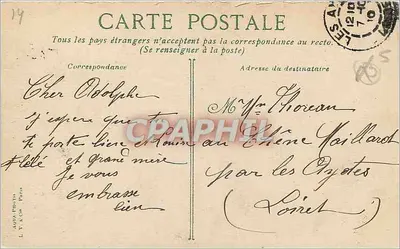 14
CARTE POSTALE
Tous les pays étrangers n'acceptent pas la correspondance au recto.
(Se renseigner à la poste)
Correspondance
Adresse du destinataire
LES A
12 10
7
10
5
Cher Adolphe
j'espère que tu
te porte bien et Louise
et grand mère
je vous
embrasse
bien
Mr Thoreau
au Chêne Maillard
par les Aydes
(Loiret)
CPAPHIL